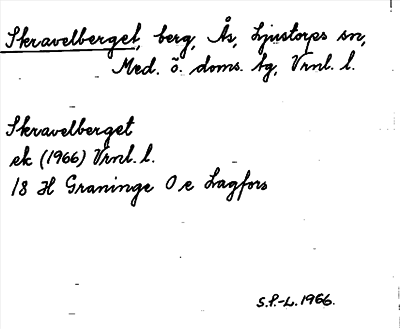 Skravelberget, berg, Ås, Ljustorps sn,
Med. ö. doms. tg, Vrnl. l.
Skravelberget
ek (1966) Vrnl. l.
18 H Graninge 0 e Lagfors
S.P.-L. 1966.